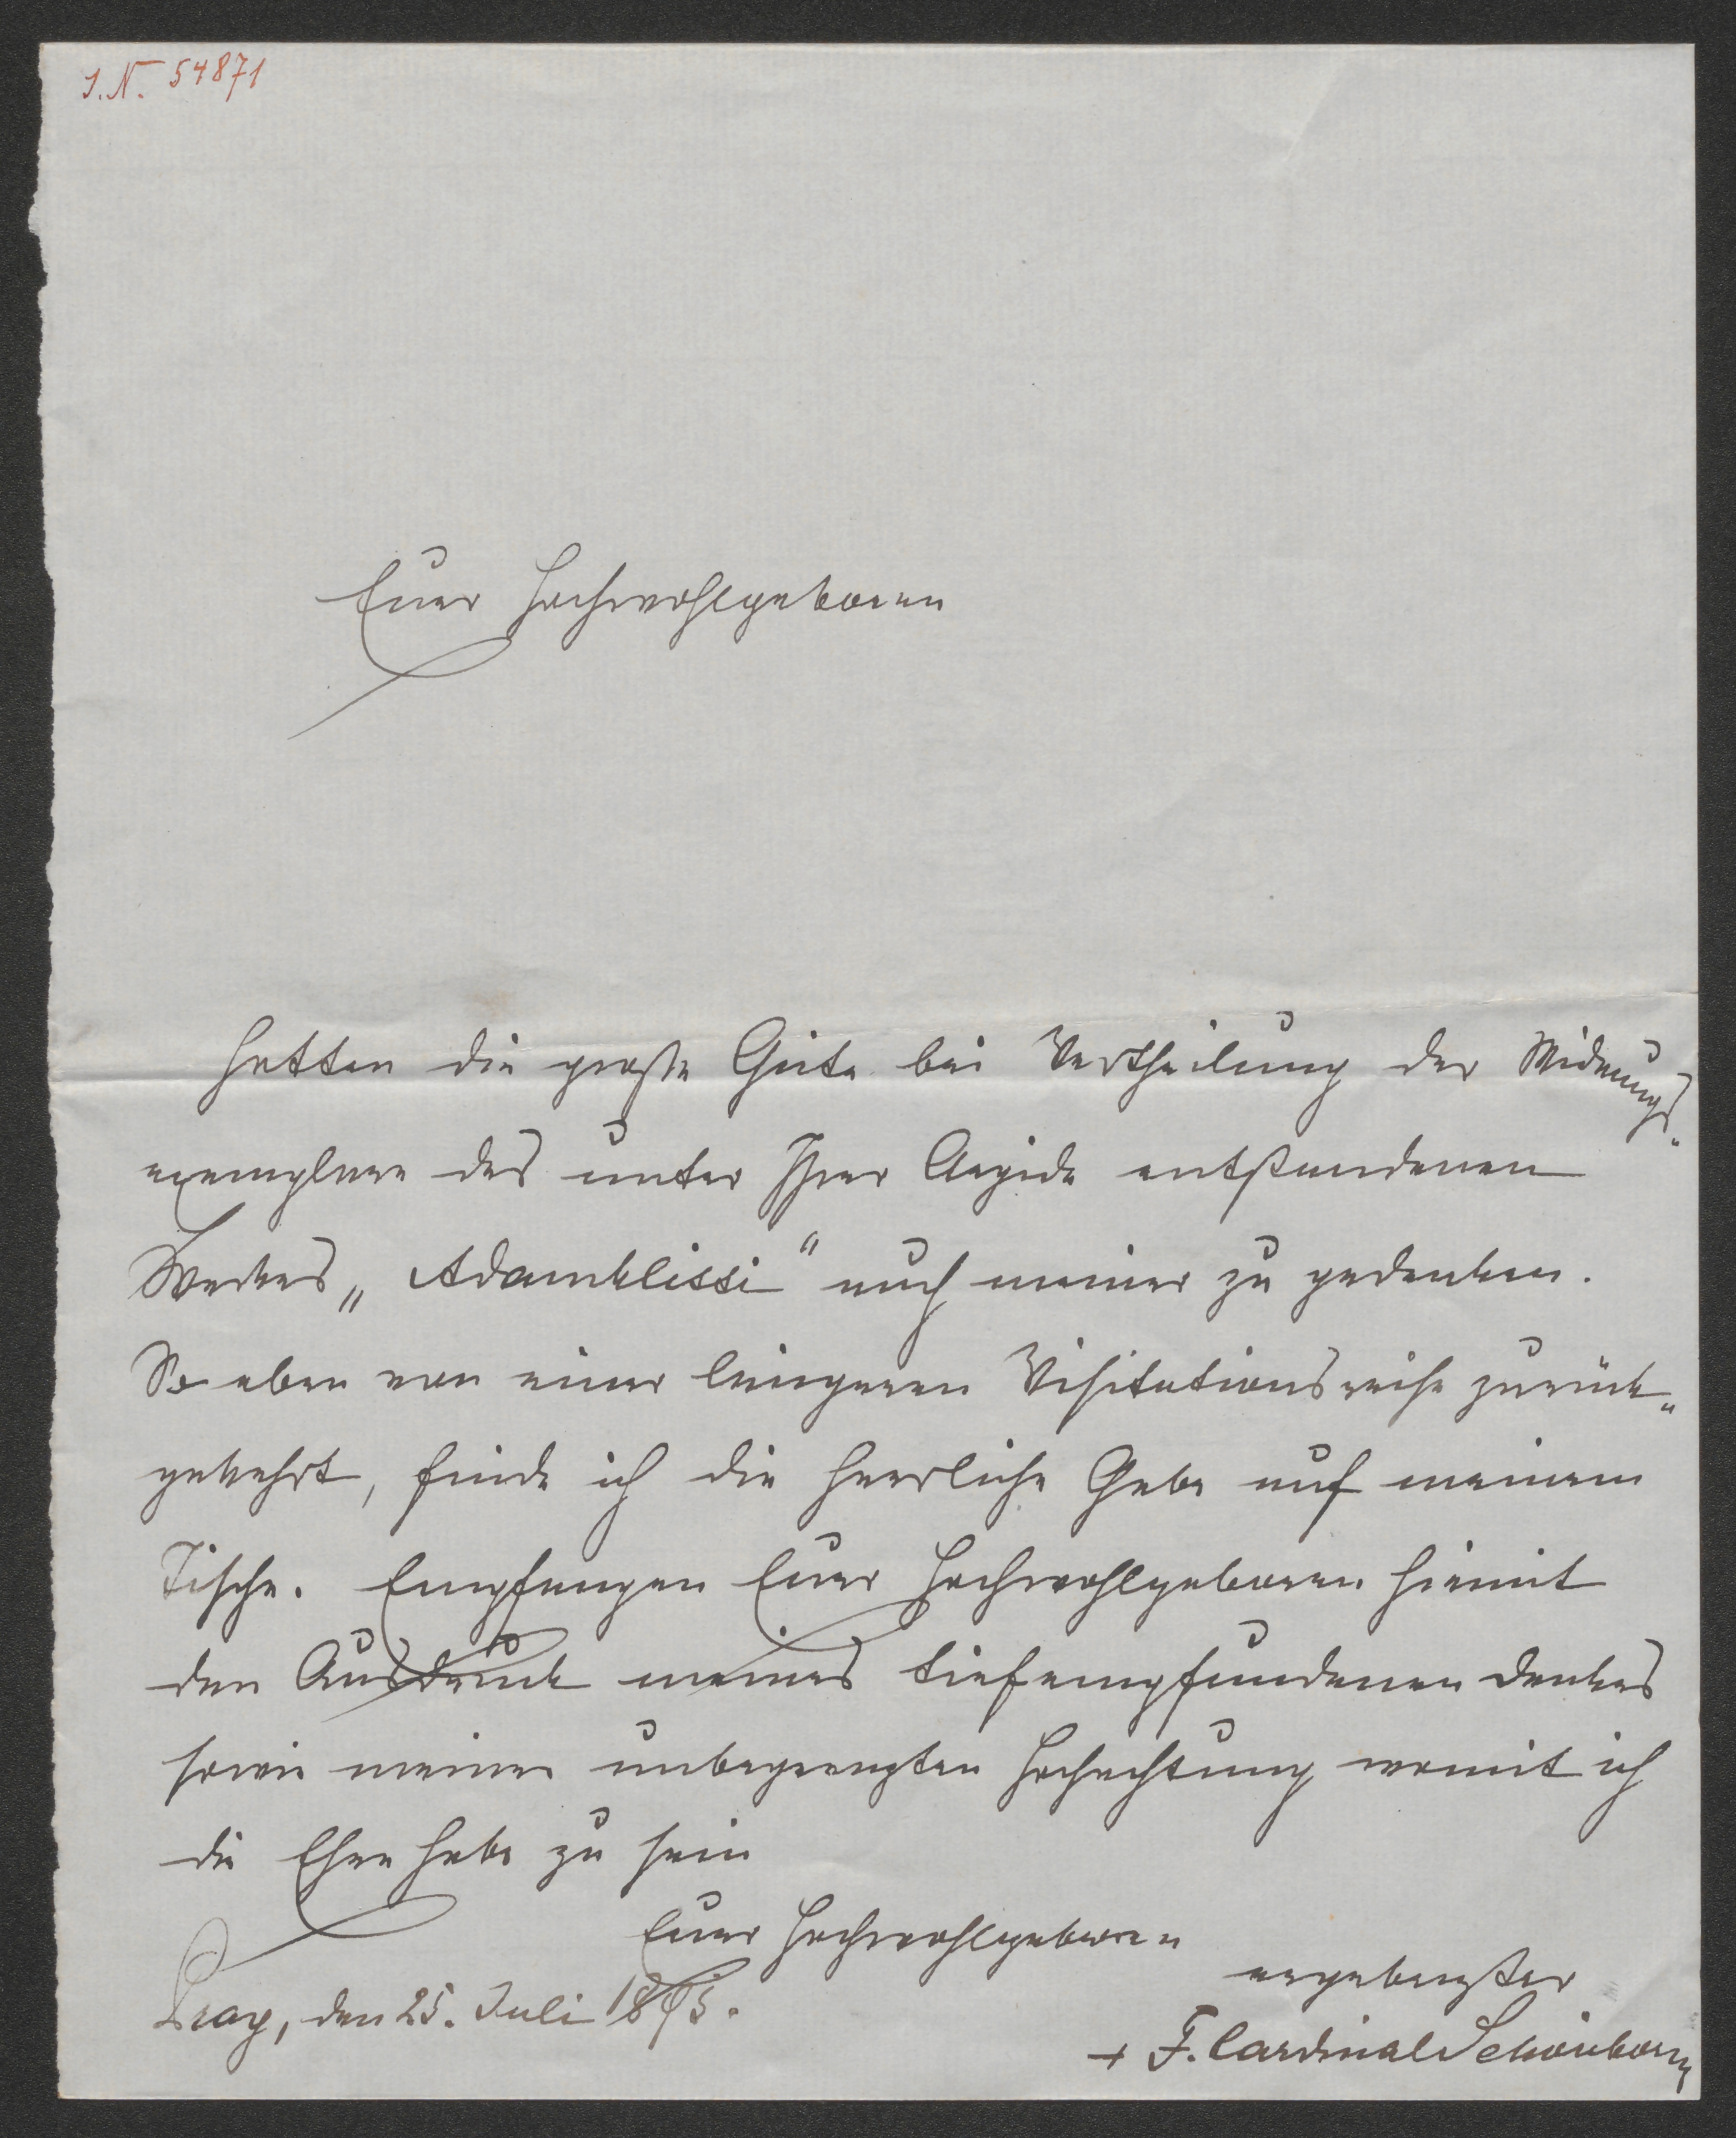 I.N. 54871
Euer Hochwohlgeboren
hatten die große Güte bei Vertheilung der Widmungs-
exemplare des unter Ihrer Aegide entstandenen
Werkes „Adamklissi“ auch meiner zu gedenken.
So eben von einer längeren Visitationsreise zurück-
gekehrt, finde ich die herrliche Gabe auf meinem
Tische. Empfangen Euer Hochwohlgeboren hiemit
den Ausdruck meines tiefempfundenen Dankes
sowie meiner unbegrenzten Hochachtung womit ich
die Ehre habe zu sein
Euer Hochwohlgeboren
ergebenster
Prag, den 25. Juli 1895.
+ F. Cardinal Schönborn